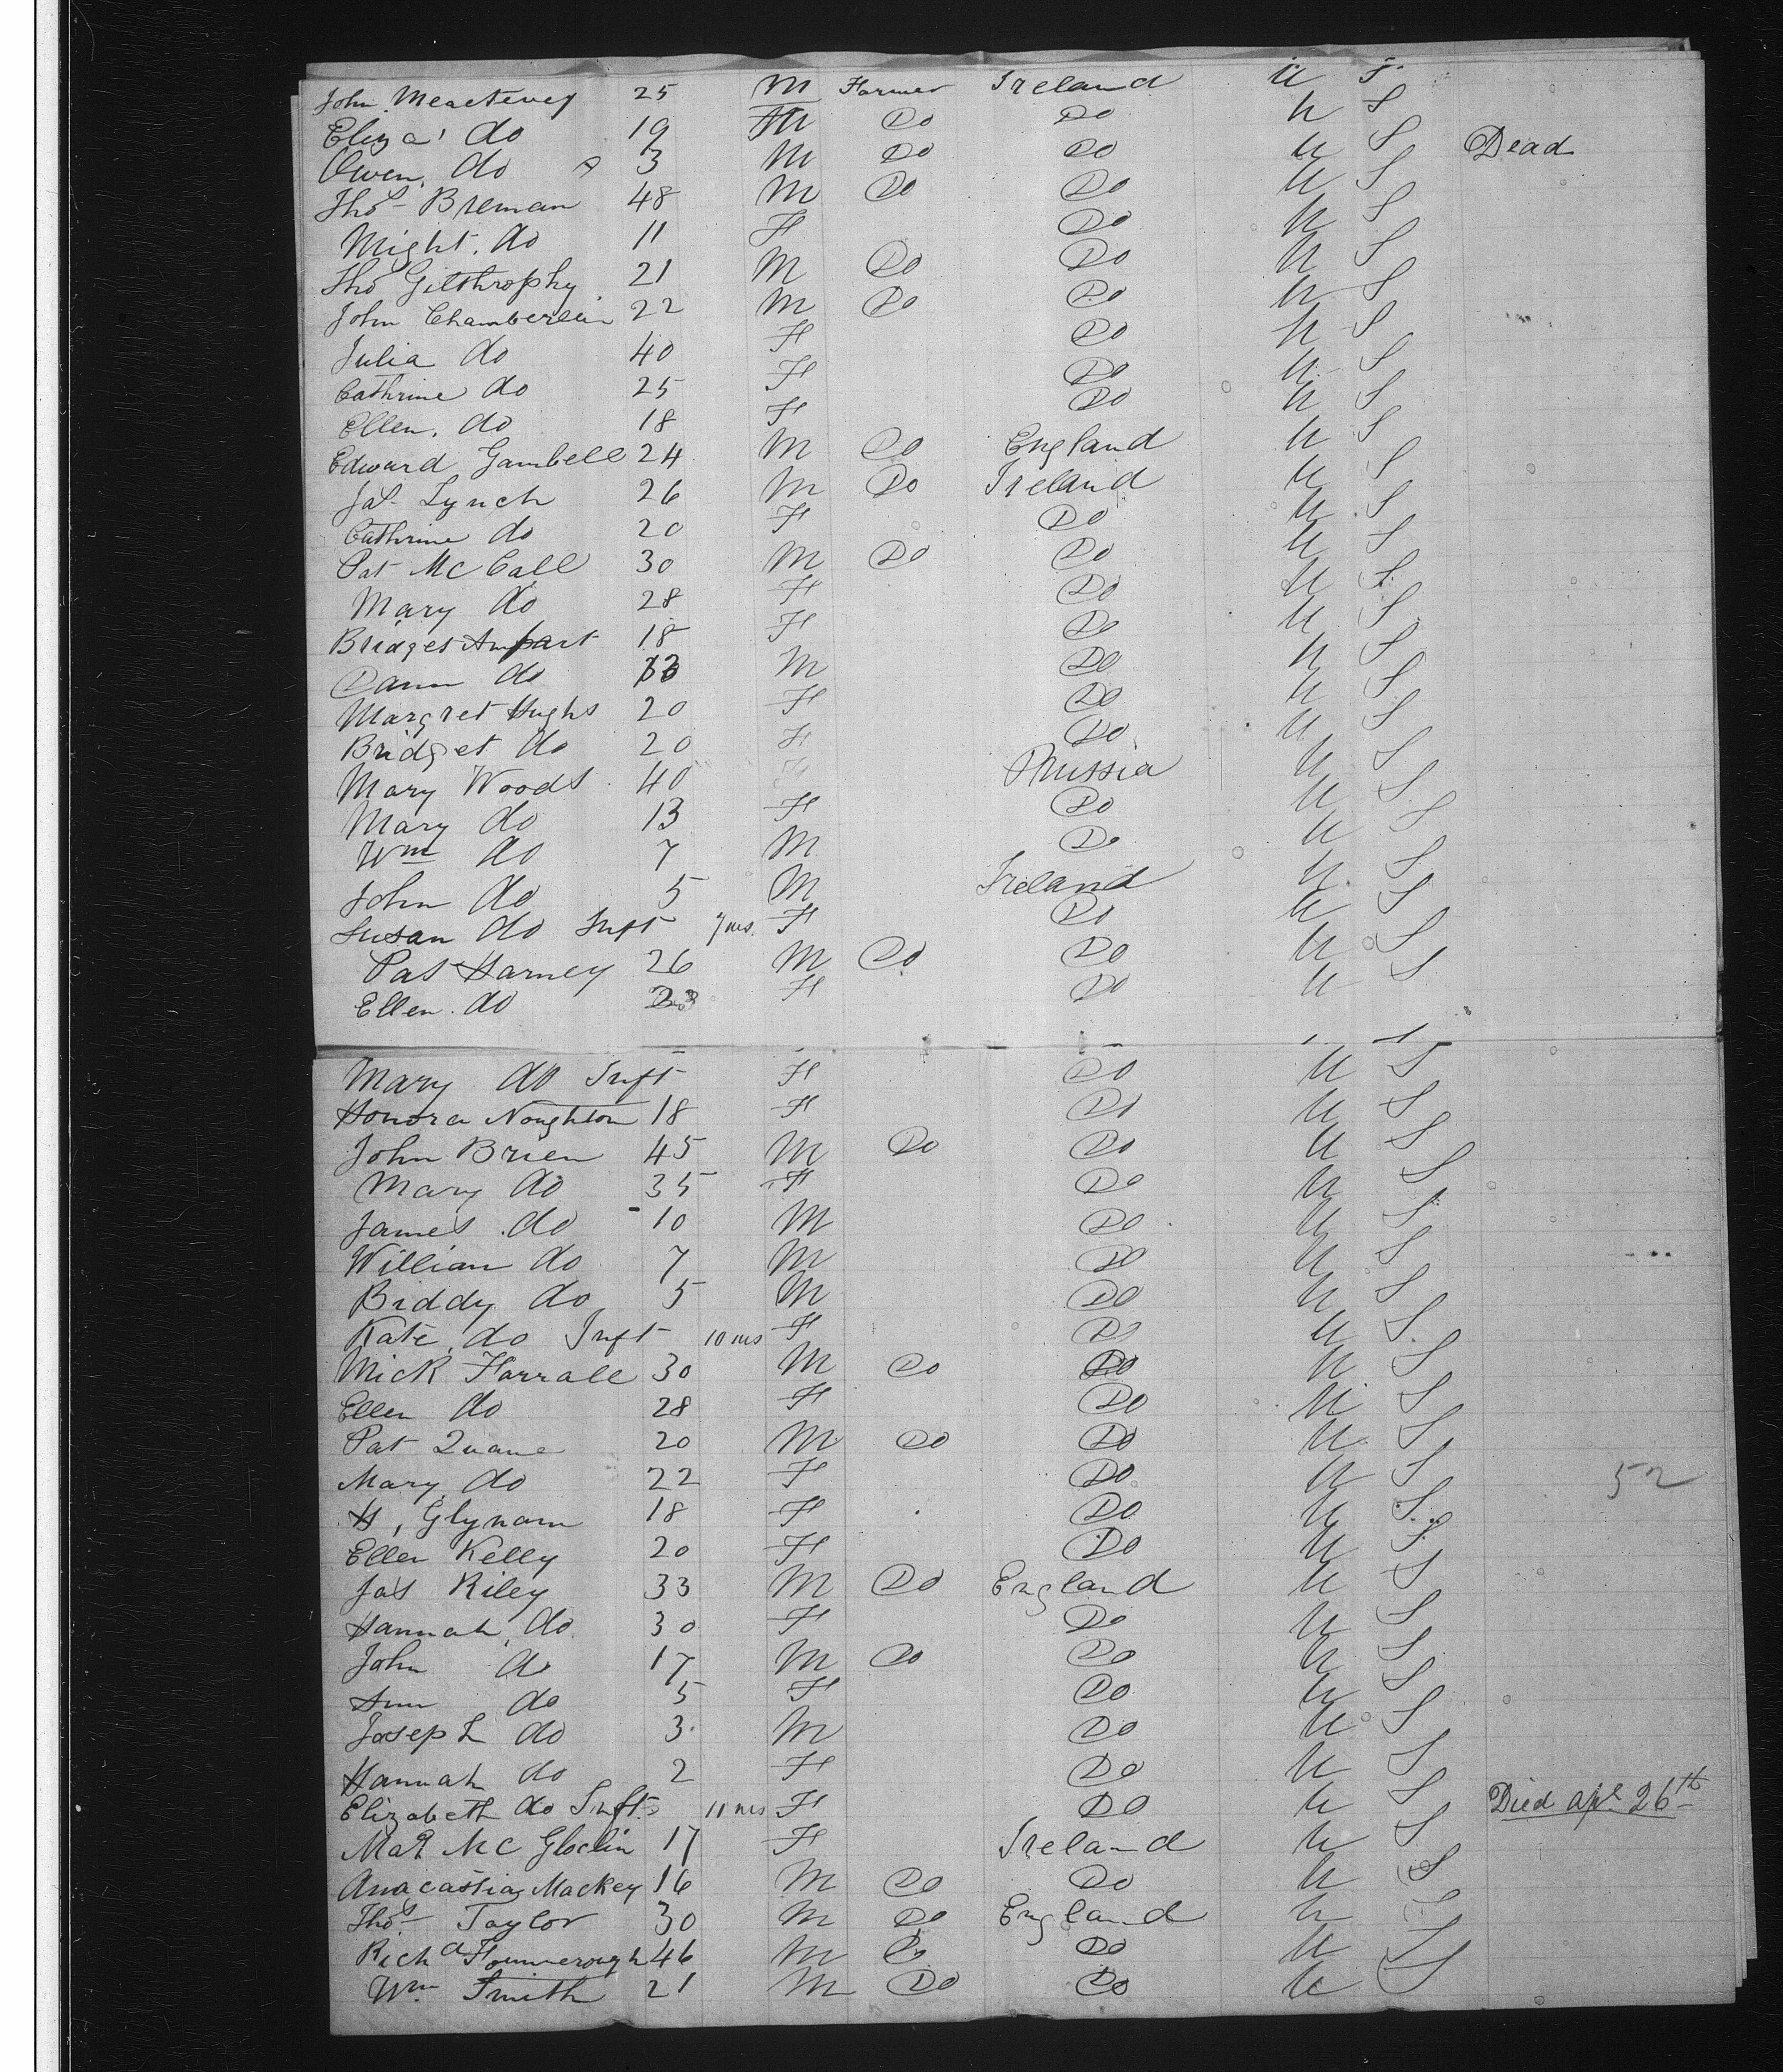 John Meactevey 25 M Farmer Ireland U S
Eliza do 19 M Do Do U S
Owen do 3 M Do Do U S Dead
Thos Breman 48 M Do Do U S
Might. do 11 F Do U S
Tho Gilthrophy 21 M Do Do U S
John Chamberlin 22 M Do Do U S
Julia do 40 F Do U S
Cathrine do 25 F Do U S
Ellen. do 18 F Do U S
Edward Gambell 24 M Do England U S
Jas Lynch 26 M Do Ireland U S
Cathrine do 20 F Do U S
Pat McCall 30 M Do Do U S
Mary do 28 F Do U S
Bridget 18 F Do U S
Dann do M Do U S
Margret Hughs 20 F Do U S
Bridget do 20 F Do U S
Mary Woods 40 F Prussia U S
Mary do 13 F Do U S
Wm do 7 M Do U S
John do 5 M Ireland U S
Susan do Inft 7 ms F Do U S
Pat Harney 26 M Do Do U S
Ellen. do 23 F Do U S
Mary do Inft F Do U S
Honora Noughton 18 F Do U S
John Brien 45 M Do Do U S
Mary do 35 F Do U S
James do 10 M Do U S
William do 7 M Do U S
Biddy do 5 M Do U S
Kate do Inft 10 ms F Do U S
Mick Farrall 30 M Do Do U S
Ellen do 28 F Do U S
Pat Quane 20 M Do Do U S
Mary do 22 F Do U S 52
H, Glynam 18 F Do U S
Ellen Kelly 20 F Do U S
Jas Riley 33 M Do England U S
Hannah do 30 F Do U S
John do 17 M Do Do U S
Ann do 5 F Do U S
Joseph do 3 M Do U S
Hannah do 2 F Do U S
Elizabeth do Inft 11 ms F Do U S Died Apl 26th
Mat Mc Gloclin 17 F Ireland U S
Anacastia Mackey 16 M Do Do U S
Thos Taylor 30 M Do England U S
Richd 46 M Do Do U S
Wm Smith 21 M Do Do U S